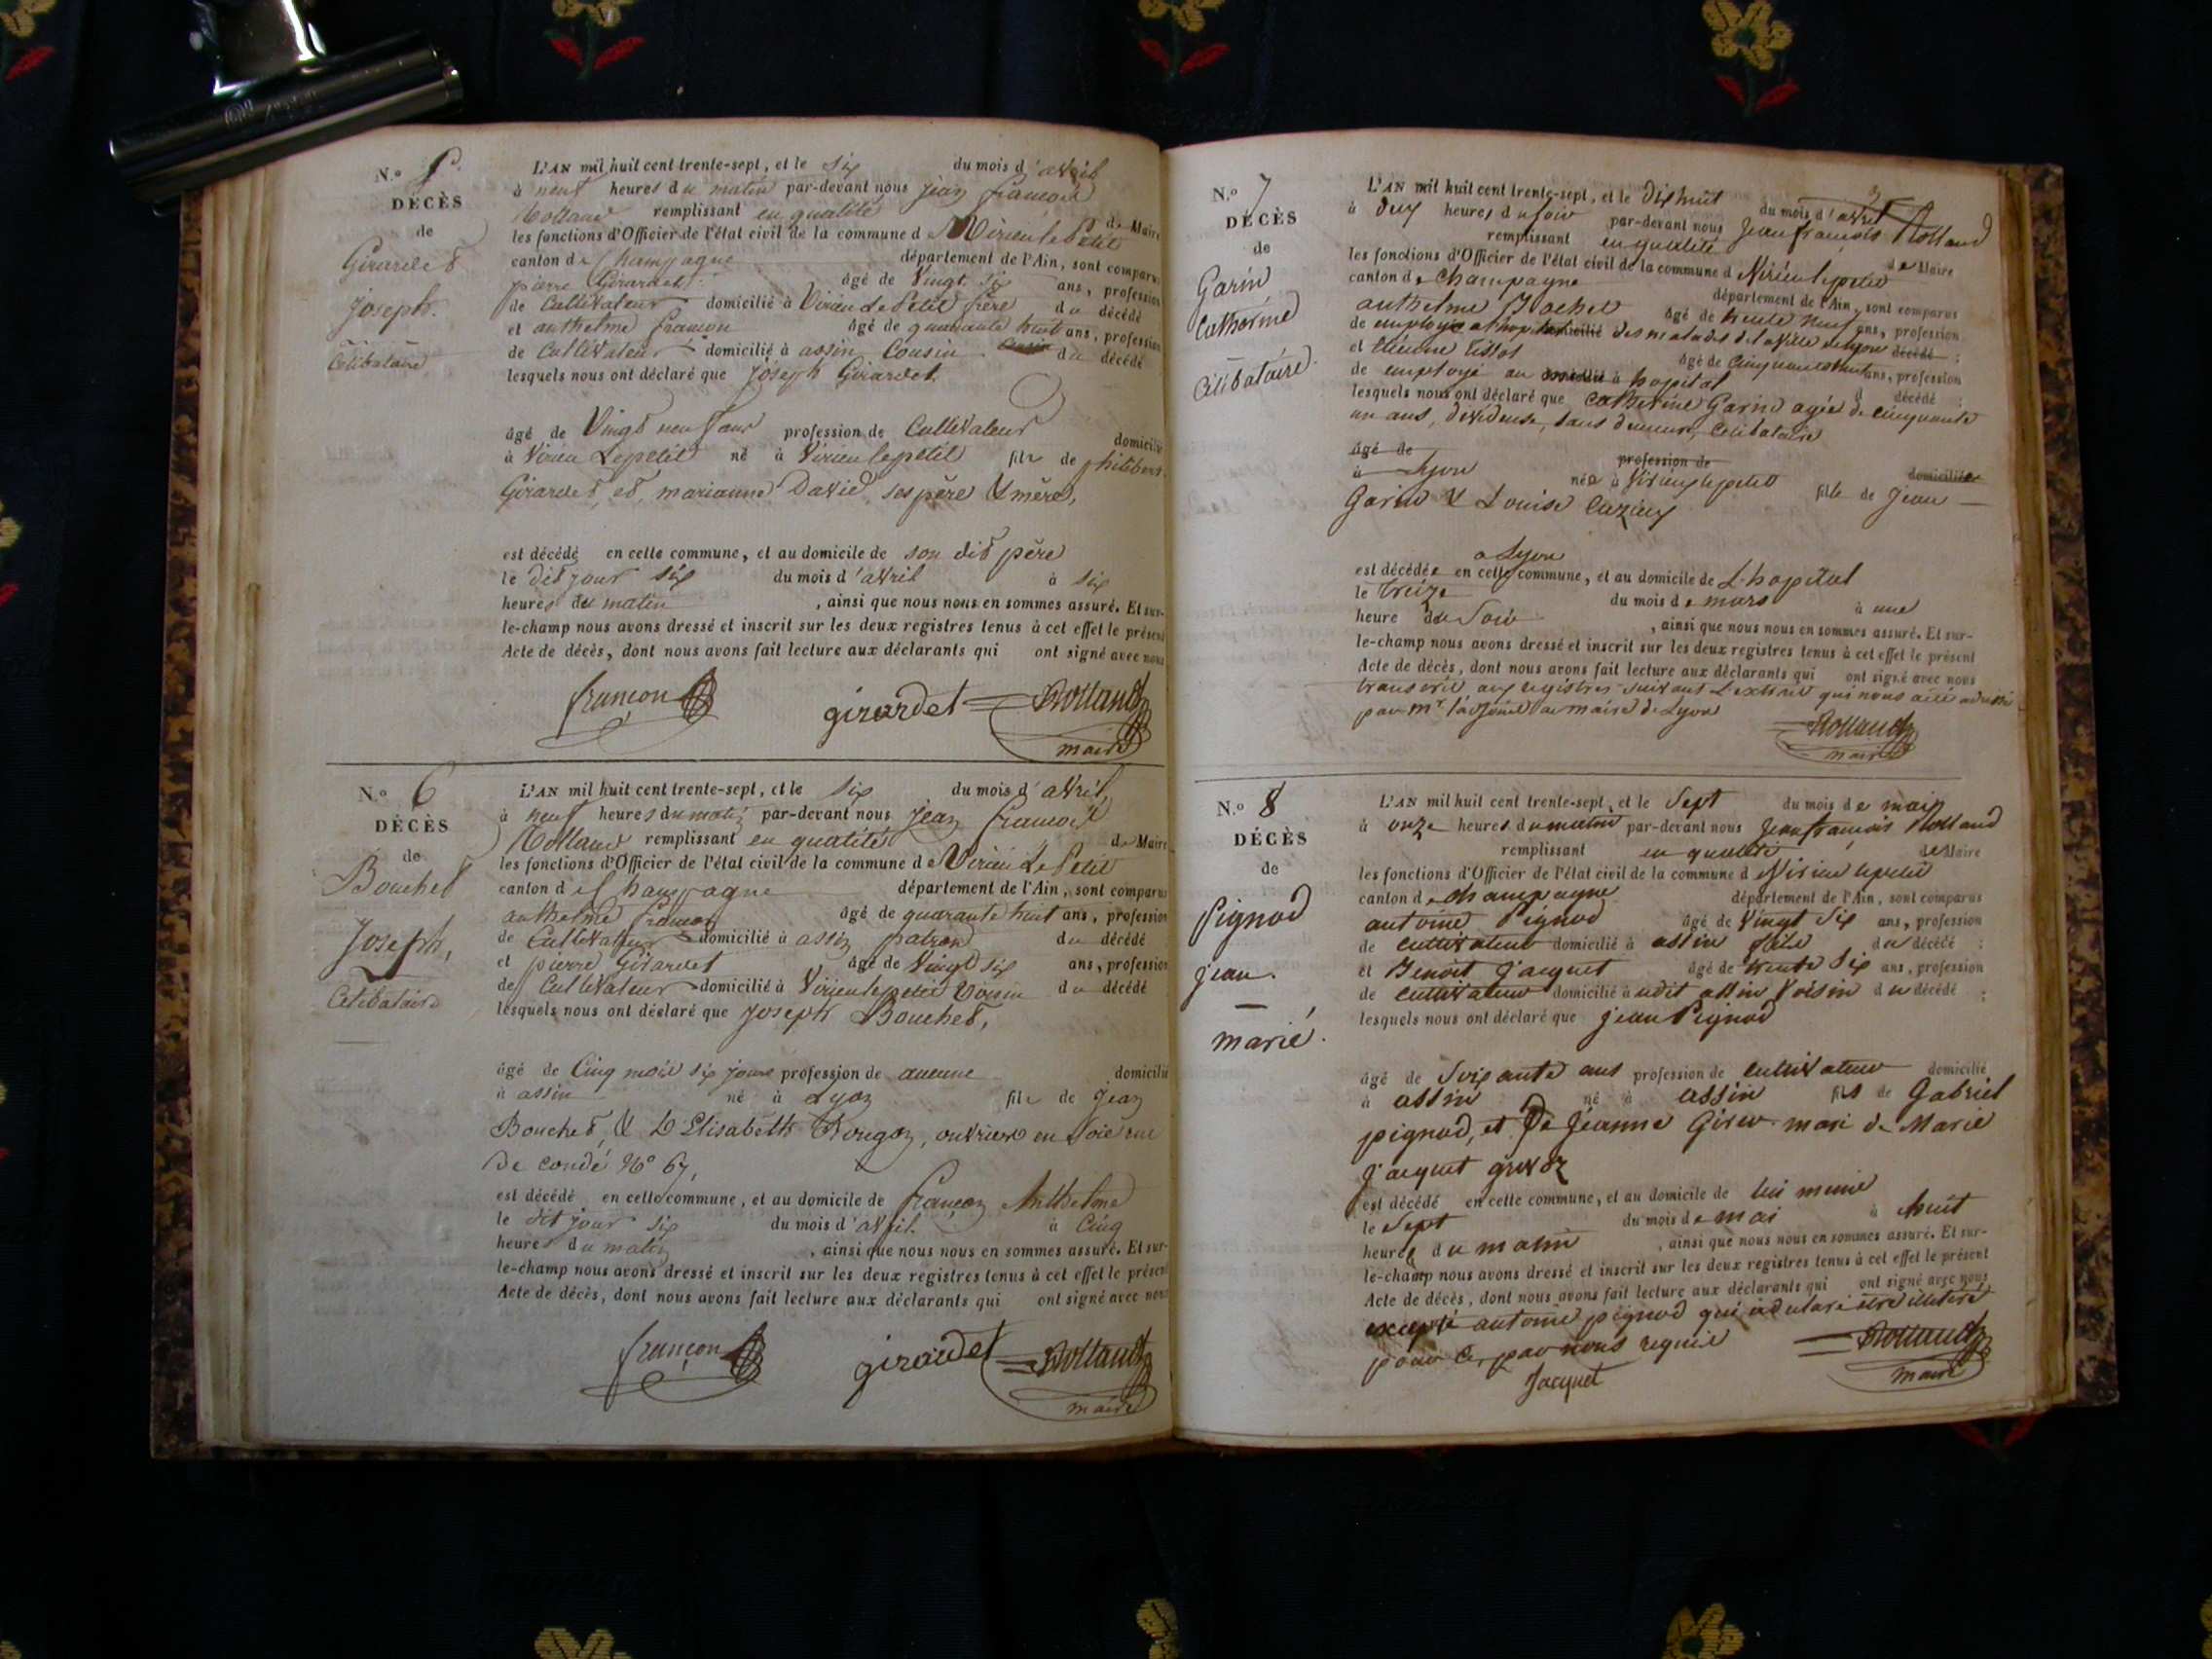 N.o 5
DÉCÈS
de
Girardet
Joseph.
Célibataire
L'AN mil huit cent trente-sept, et le six du mois d'avril
à neuf heures du matin par-devant nous jean françois
Rolland remplissant en qualité de Maire
les fonctions d'Officier de l'état civil de la commune de Virieu le Petit
canton de Champagne département de l'Ain, sont comparus
pierre Girardet âgé de Vingt six ans, profession
de Cultivateur domicilié à Virieu Le Petit frère du décédé
et anthelme françon âgé de quarante huit ans, profession
de Cultivateur domicilié à assin Cousin du décédé
lesquels nous ont déclaré que Joseph Girardet.
âgé de Vingt neuf ans profession de Cultivateur domicilié
à Virieu Lepetit né à Virieu lepetit fils de philibert
Girardet, et, marianne David, ses père & mère,
est décédé en cette commune, et au domicile de son dit père
le dit jour six du mois d'avril à six
heures du matin , ainsi que nous nous en sommes assuré. Et sur-
le-champ nous avons dressé et inscrit sur les deux registres tenus à cet effet le présent
Acte de décès, dont nous avons fait lecture aux déclarants qui ont signé avec nous
françon girardet Rolland
maire
N.o 6
DÉCÈS
de
Bouchet
Joseph,
Célibataire
L'AN mil huit cent trente-sept, et le six du mois d'avril,
à neuf heures du matin par-devant nous jean françois
Rolland remplissant en qualité de Maire
les fonctions d'Officier de l'état civil de la commune de Virieu Le Petit
canton de Champagne département de l'Ain, sont comparus
anthelme françon âgé de quarante huit ans, profession
de Cultivateur domicilié à assin patron du décédé
et pierre Girardet âgé de Vingt six ans, profession
de Cultivateur domicilié à Virieu lepetit Voisin du décédé
lesquels nous ont déclaré que Joseph Bouchet,
âgé de Cinq mois six jours profession de aucune domicilié
à assin né à Lyon fils de Jean
Bouchet, & D Elisabeth Rougon, ouvriers en Soie rue
de condé No 67,
est décédé en cette commune, et au domicile de françon Anthelme
le dit jour six du mois d'avril. à Cinq
heures du matin , ainsi que nous nous en sommes assuré. Et sur-
le-champ nous avons dressé et inscrit sur les deux registres tenus à cet effet le présent
Acte de décès, dont nous avons fait lecture aux déclarants qui ont signé avec nous
françon girardet Rolland
maire
N.o 7
DÉCÈS
de
Garin
Catherine
Célibataire.
L'AN mil huit cent trente-sept, et le dixhuit du mois d'avril
à deux heures du soir par-devant nous Jean françois Rolland
remplissant en qualité de Maire
les fonctions d'Officier de l'état civil de la commune de Virieu lepetit
canton de Champagne département de l'Ain, sont comparus
anthelme Bochet âgé de trente neuf ans, profession
de employé domicilié des malades de la ville de lyon décédé ;
et Etienne Tissot âgé de Cinquante huit ans, profession
de employé au domicilié à hopital d décédé ;
lesquels nous ont déclaré que Catherine Garin agée de cinquante
un ans, dévideuse, sans demeure, Celibataire
âgé de profession de domiciliée
à Lyon née à Virieu lepetit fille de Jean
Garin & Louise Cuzin
a Lyon
est décédée en cette commune, et au domicile de L'hopital
le treize du mois de mars à une
heure du Soir , ainsi que nous nous en sommes assuré. Et sur-
le-champ nous avons dressé et inscrit sur les deux registres tenus à cet effet le présent
Acte de décès, dont nous avons fait lecture aux déclarants qui ont signé avec nous
transcrit aux registres suivant L'extrait qui nous a été adressé
par mr l'adjoint au maire de Lyon
Rolland
maire
N.o 8
DÉCÈS
de
Pignod
jean.
marié.
L'AN mil huit cent trente-sept, et le Sept du mois de mai
à onze heures du matin par-devant nous Jean françois Rolland
remplissant en qualité de Maire
les fonctions d'Officier de l'état civil de la commune de Virieu lepetit
canton de champagne département de l'Ain, sont comparus
antoine Pignod âgé de Vingt Six ans, profession
de cultivateur domicilié à assin fils du décédé ;
et Benoit Jacquet âgé de trente Six ans, profession
de cultivateur domicilié à udit assin Voisin du décédé ;
lesquels nous ont déclaré que jean Pignod
âgé de Soixante ans profession de cultivateur domicilié
à assin né à assin fils de Gabriel
pignod, et De Jeanne Girer mari de Marie
Jacquet
est décédé en cette commune, et au domicile de lui meme
le Sept du mois de mai à huit
heures du matin , ainsi que nous nous en sommes assuré. Et sur-
le-champ nous avons dressé et inscrit sur les deux registres tenus à cet effet le présent
Acte de décès, dont nous avons fait lecture aux déclarants qui ont signé avec nous
excepté antoine pignod qui a déclaré être illitéré
pour ce, par nous requis Rolland
Jacquet maire